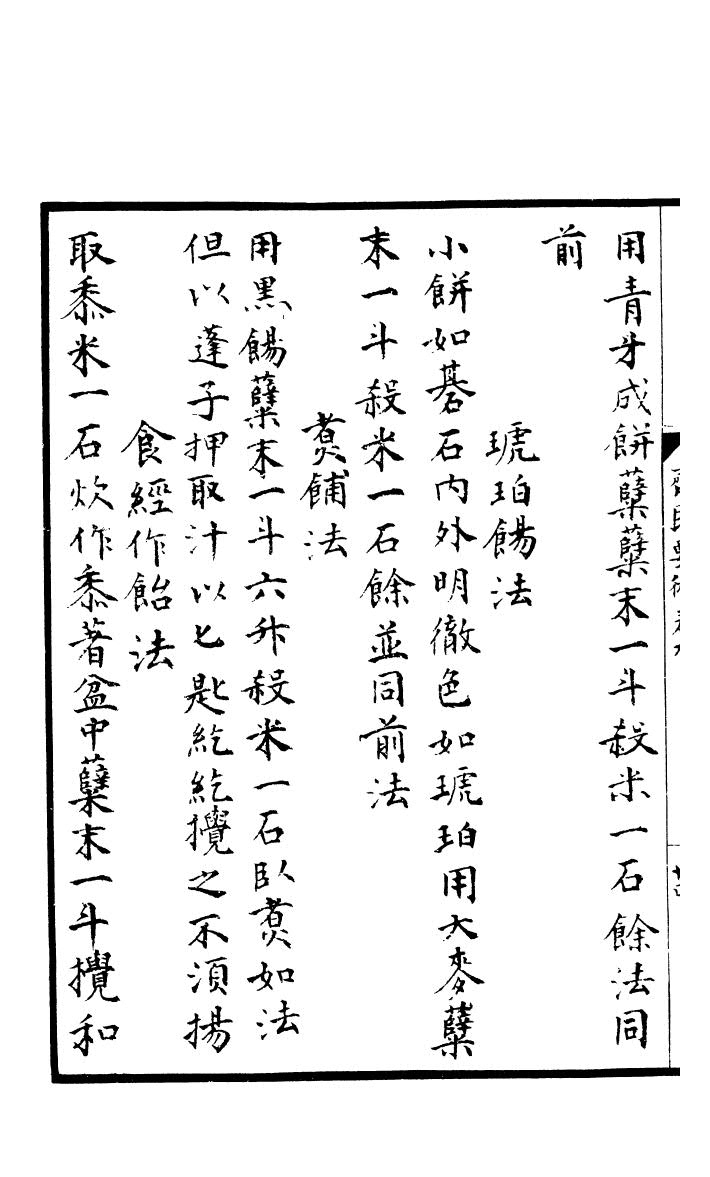 用青牙成餅糵糵末一斗殺米一石餘法同
前
琥珀餳法
小餅如碁石内外明徹色如琥珀用大麥糵
末一斗殺米一石餘並同前法
煑餔法
用黒餳糵末一斗六升殺米一石臥煑如法
但以蓬子押取汁以匕匙紇紇攪之不須揚
食經作飴法
取黍米一石炊作黍著盆中糵末一斗攪和